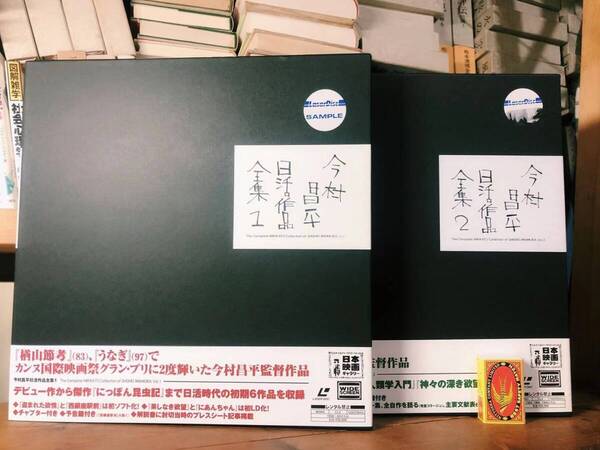 図解雑学
社会心理学
LaserDisc
SAMPLE
今村
昌平
日活作品
全集1
The Complete NIKKATSU Collection of SHOHEI IMAMURA Vol.1
『楢山節考』(83)、『うなぎ』(97)で
カンヌ国際映画祭グラン・プリに2度輝いた今村昌平監督作品
今村昌平日活作品全集1 The Complete NIKKATSU Collection of SHOHEI IMAMURA Vol.1
デビュー作から傑作『にっぽん昆虫記』まで日活時代の初期6作品を収録
◆『盗まれた欲情』と『西銀座駅前』は初ソフト化! ◆『果しなき欲望』と『にあんちゃん』は初LD化!
◆チャプター付き ◆予告篇付き
◆解説書に封切当時のプレスシート記事掲載
日本
映画
ギャラリー
WIDE
SCREEN
レンタル禁止
LaserDisc
今村
昌平
日活作品
全集2
The Complete NIKKATSU Collection of SHOHEI IMAMURA Vol.2
監督作品
人類学入門』『神々の深き欲望
日本
映画
ギャラリー
WIDE
SCREEN
レンタル禁止